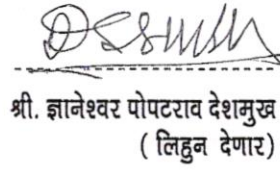 श्री. ज्ञानेश्वर पोपटराव देशमुख
( लिहुन देणार)